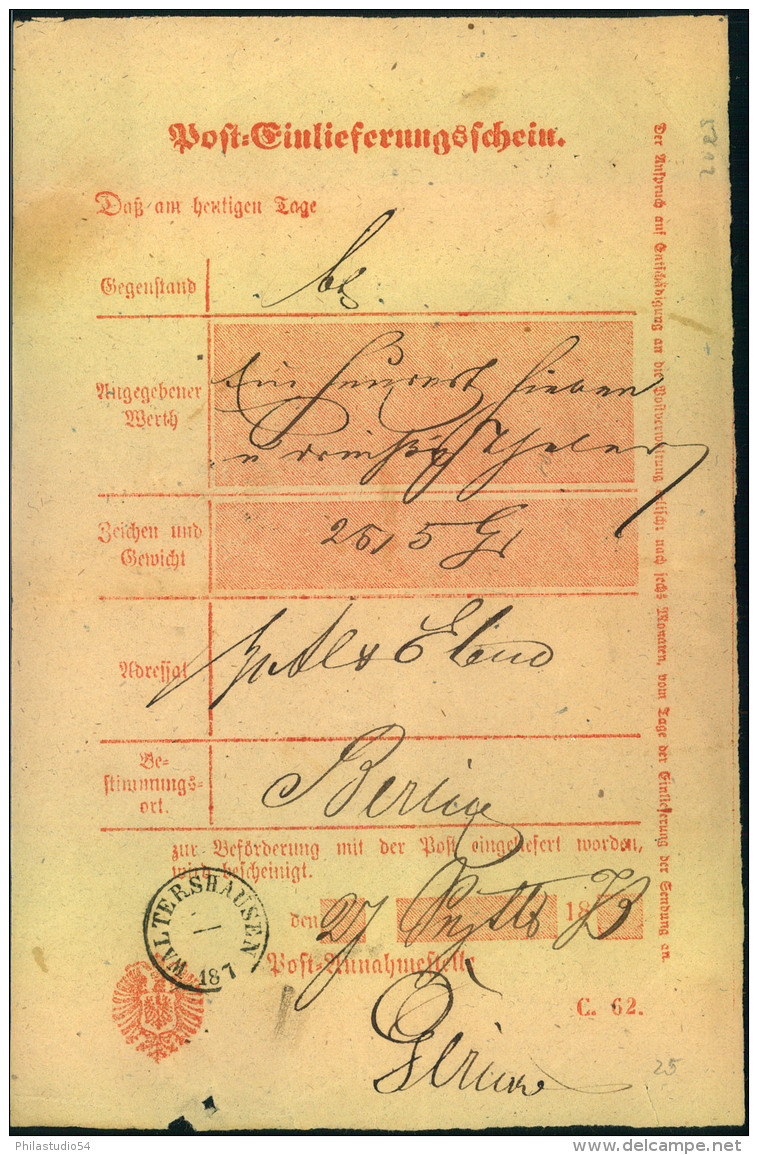 Post-Einlieferungsschein.
Daß am heutigen Tage
Gegenstand
Angegebener
Werth
Ein hundert sieben
u dreißig Thaler
Zeichen und
Gewicht
25,5 Gr
Adressat
Be-
stimmungs-
ort.
Berlin
zur Beförderung mit der Post eingeliefert worden,
wird bescheinigt.
den 27 Septb 1873
Post-Annahmestelle
WALTERSHAUSEN
187
C. 62.
25
Der Anspruch auf Entschädigung an die Postverwaltung erlischt nach sechs Monaten, vom Tage der Einlieferung der Sendung an.
Philastudio54
delcampe.net